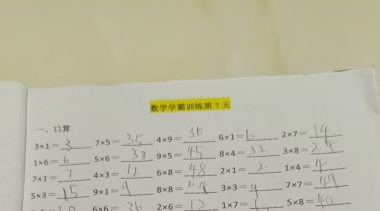 数学学霸训练第7天
一、口算
3×1=3 7×5=35 4×9=36 6×1=6 2×7=14
1×6=6 5×6=30 9×5=45 8×4=32 3×8=24
7×1=7 4×3=12 6×8=48 2×1=2 1×4=4
5×3=15 9×1=9 8×8=64 3×3=9 7×7=49
6×6=36 2×6=12 1×7=7 5×8=40